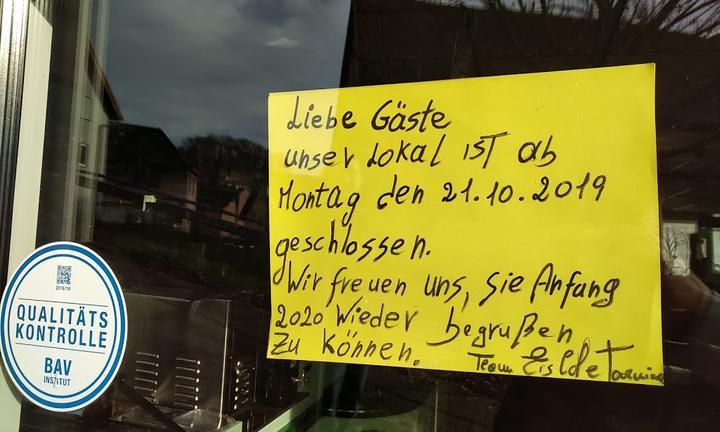 Liebe Gäste
unser Lokal ist ab
Montag den 21.10.2019
geschlossen.
Wir freuen uns, sie Anfang
2020 Wieder begrußen
Zu können. Team
QUALITÄTS
KONTROLLE
BAV
INSTITUT